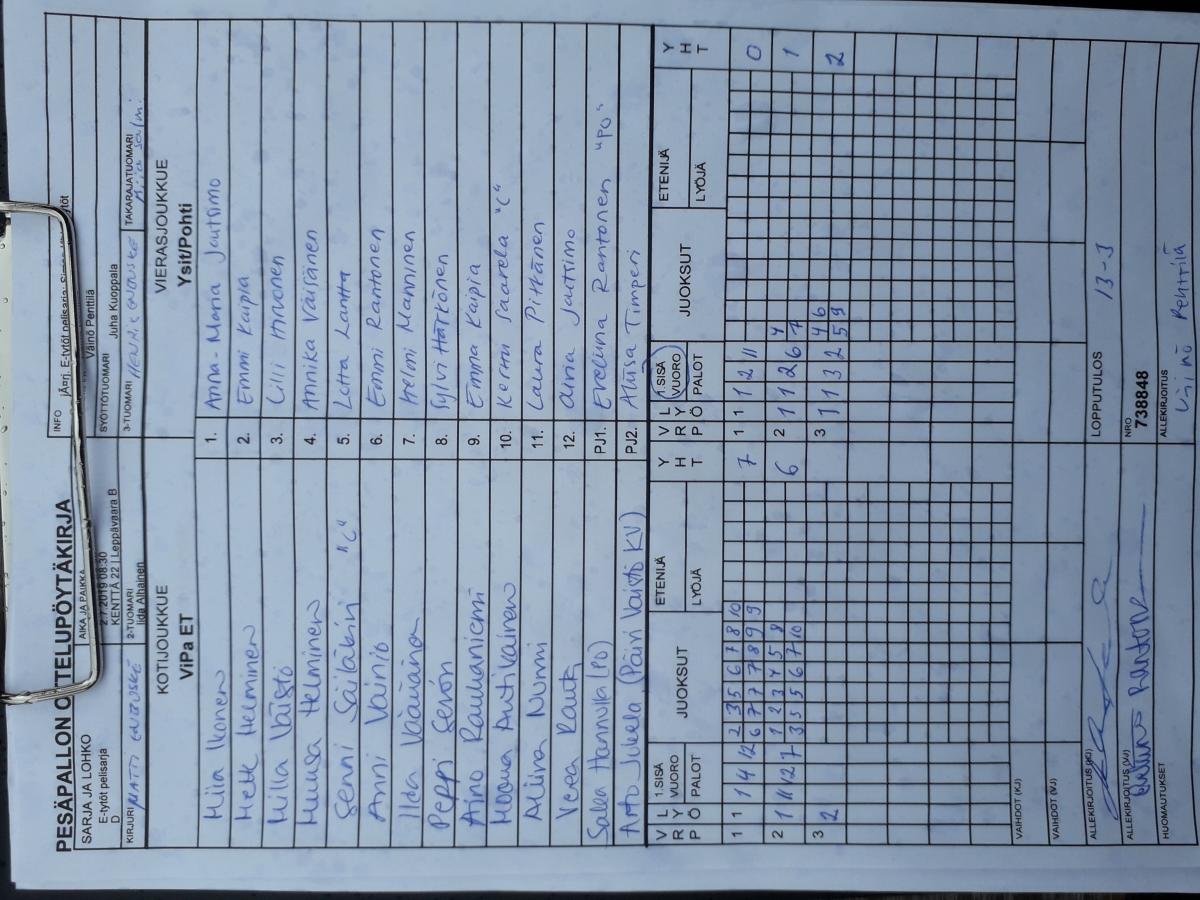 PESÄPALLON OTTELUPÖYTÄKIRJA
SARJA JA LOHKO
E-tytöt pelisarja
D
AIKA JA PAIKKA
2.7.2019 08:30
KENTTÄ 22 | Leppävaara B
INFO
jÄ¤rj. E-tytöt pelisarja:
Väinö Penttilä
SYÖTTÖTUOMARI
Juha Kuoppala
KIRJURI MATTI
2-TUOMARI
Iida Alhainen
3-TUOMARI HENRI
TAKARAJATUOMARI
KOTIJOUKKUE
ViPa ET
VIERASJOUKKUE
Ysit/Pohti
Miia Ikonen 1. Anna-Maria Joutsimo
Hette Helminen 2. Emmi Kaipia
Milla Väistö 3. Lilli Hirvonen
Meeusa Helminen 4. Annika Väisänen
Senni Säiläkivi "C" 5. Lotta Lantta
Anni Vainio 6. Emmi Rantonen
Ilda Väänänen 7. Helmi Manninen
Peppi Servón 8. Sylvi Härkönen
Aino Rauhaniemi 9. Emma Kaipia
Moona Antikainen 10. Kerttu Saarela "C"
Aliina Nurmi 11. Laura Pitkänen
Veea Rautk 12. Anna Joutsimo
Salla Hannula (PO) PJ1. Eveliina Rantonen "PO"
Arto Jukela (Päivi Väistö KV) PJ2. Aliisa Timperi
V R P L Y Ö 1.SISÄ VUORO PALOT JUOKSUT ETENIJÄ LYÖJÄ Y H T V R P L Y Ö 1.SISÄ VUORO PALOT JUOKSUT ETENIJÄ LYÖJÄ Y H T
1 1 1 4 12 2 3 5 6 7 8 10 7 1 1 1 2 11 0
6 7 7 7 8 9 9
2 1 11 12 7 1 2 3 4 5 8 6 2 1 1 2 6 4 1
3 5 5 6 7 10 7
3 2 3 1 1 3 2 4 6 2
5 9
VAIHDOT (KJ)
VAIHDOT (VJ)
ALLEKIRJOITUS (KJ)
LOPPUTULOS 13-3
ALLEKIRJOITUS (VJ)
NRO
738848
HUOMAUTUKSET
ALLEKIRJOITUS
Väinö Penttilä